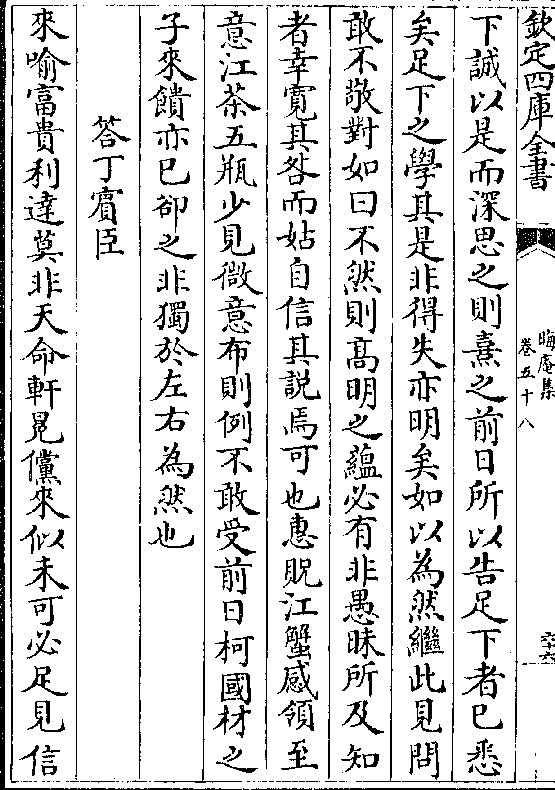 欽定四庫全書
晦庵集
卷五十八
下誠以是而深思之則熹之前日所以告足下者已悉
矣足下之學其是非得失亦明矣如以為然繼此見問
敢不敬對如曰不然則髙明之蘊必有非愚昧所及知
者幸寛其咎而姑自信其説焉可也惠貺江蟹感領至
意江茶五瓶少見微意布則例不敢受前日柯國材之
子來饋亦已卻之非獨於左右為然也
答丁賓臣
來喻富貴利達莫非天命軒冕儻來似未可必足見信